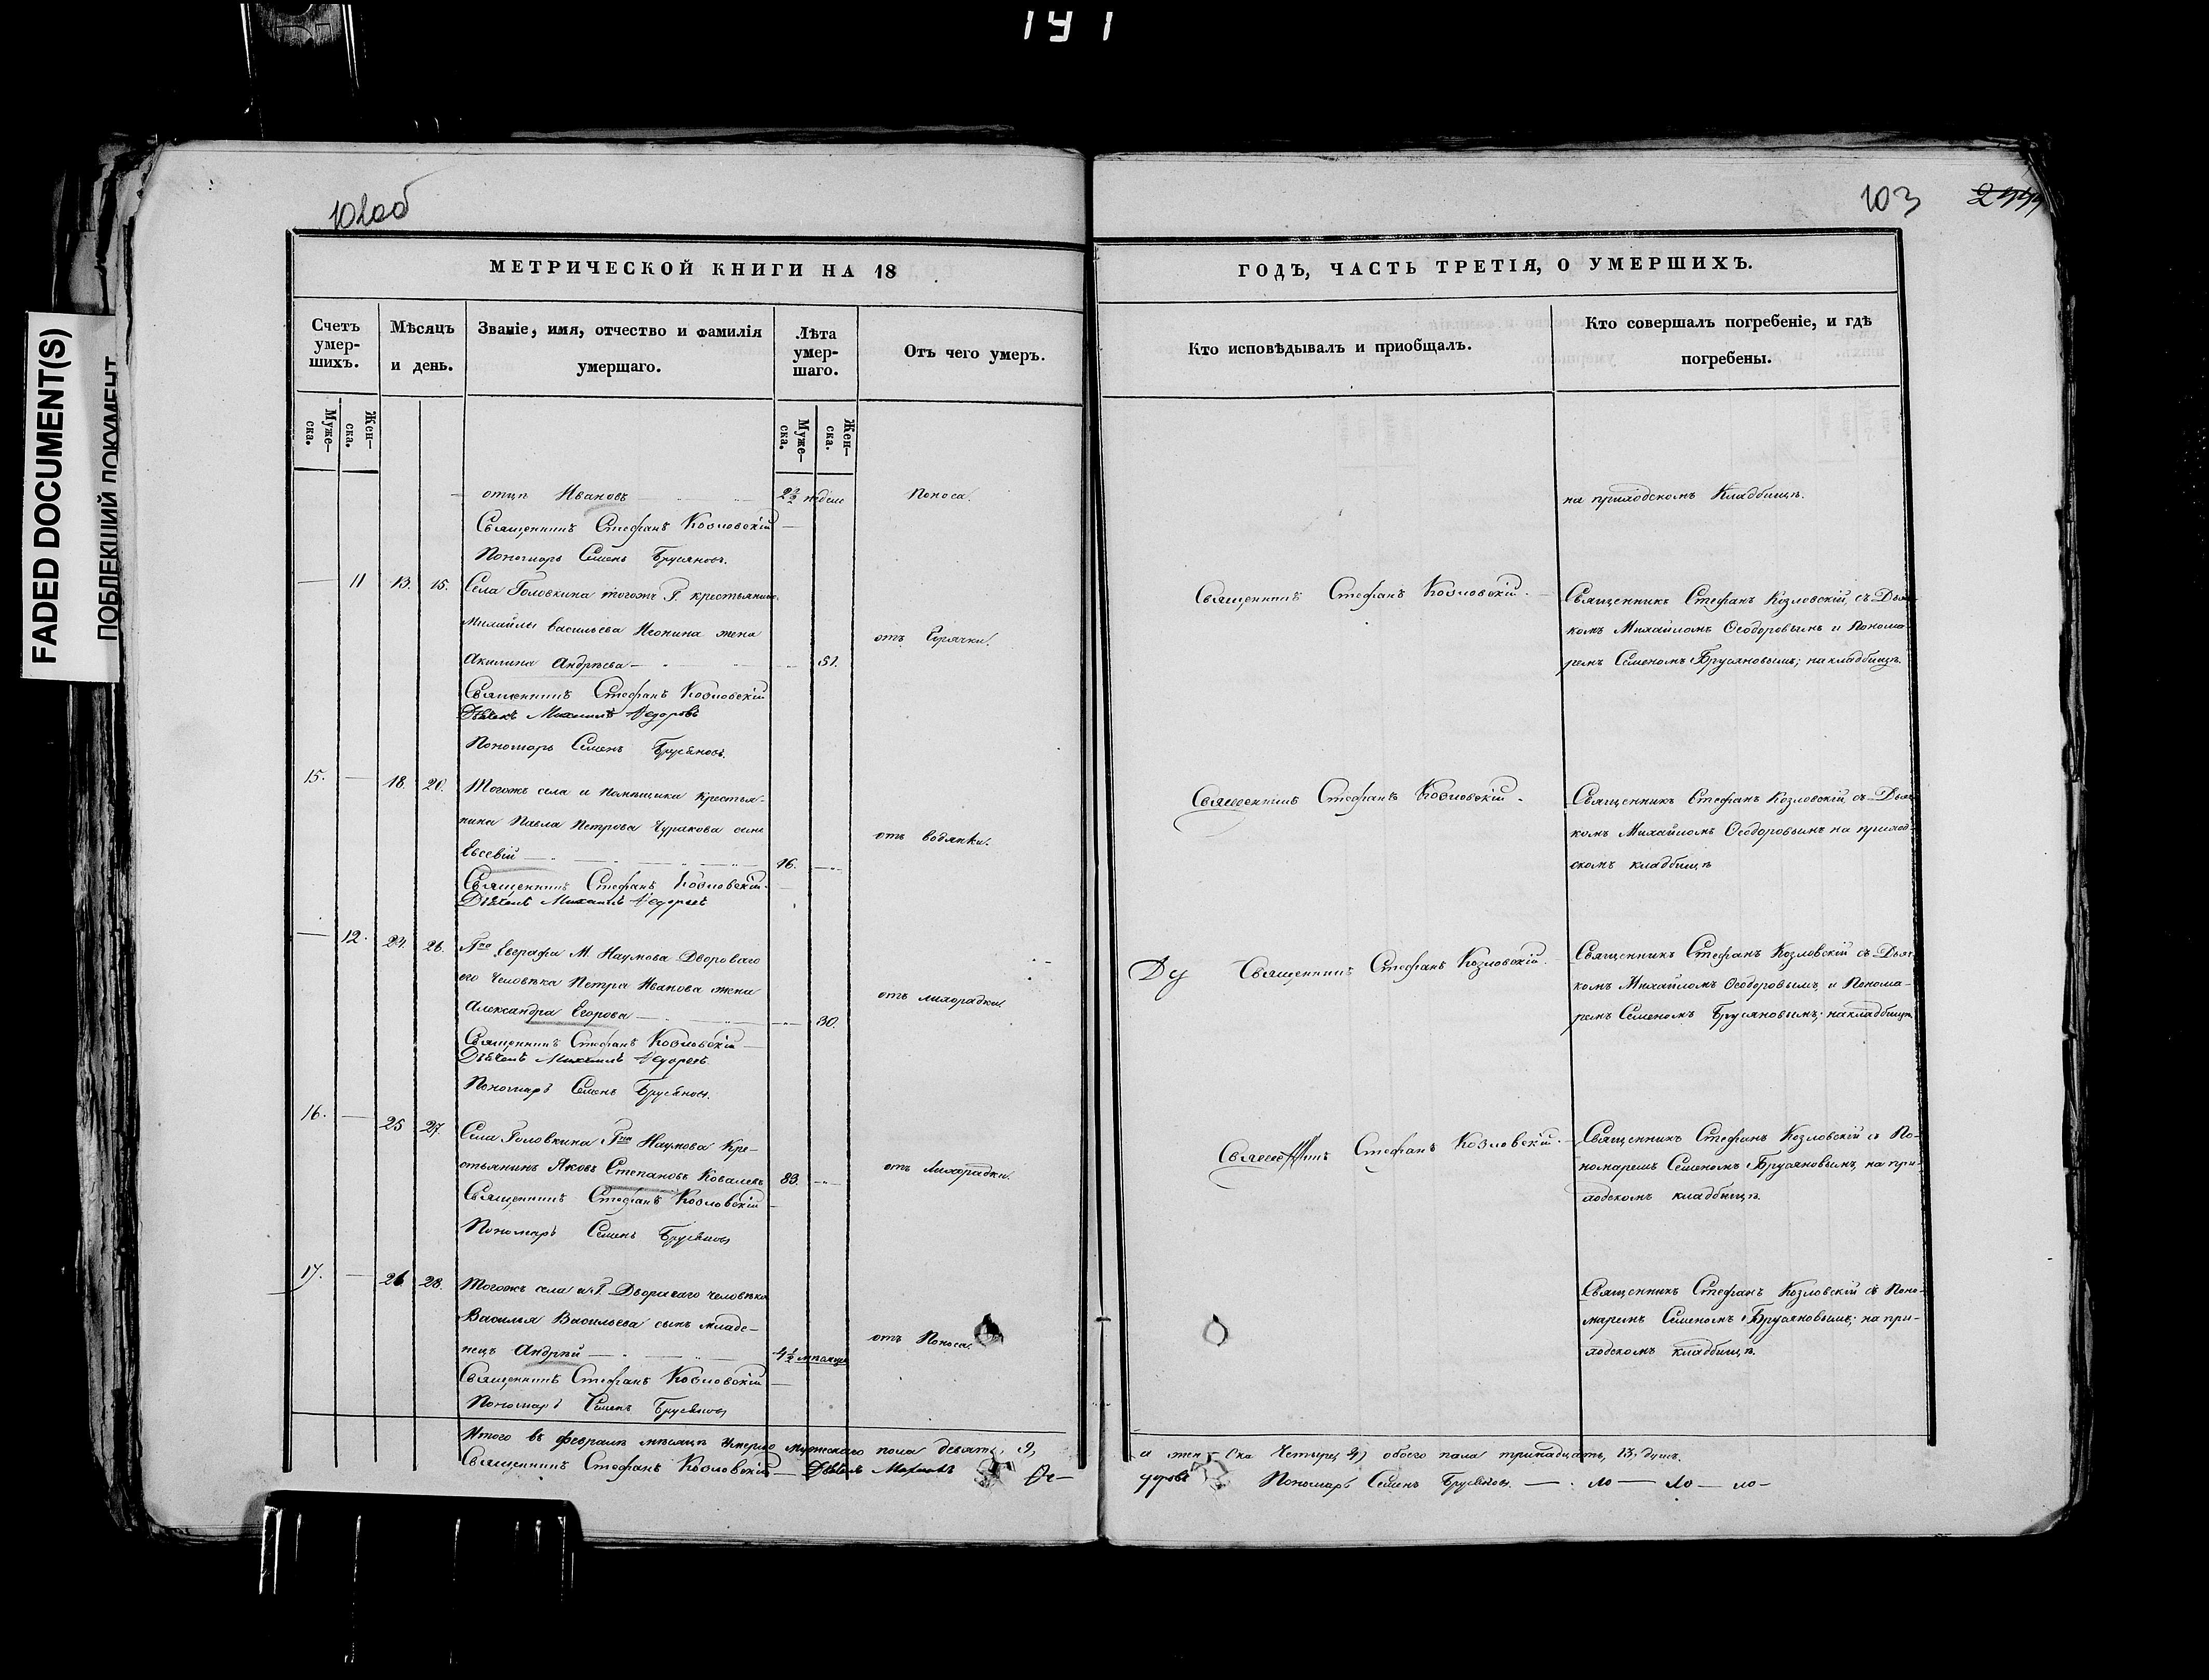 191
FADED DOCUMENT(S)
ПОБЛЕКШИЙ ДОКУМЕНТ
102об
МЕТРИЧЕСКОЙ КНИГИ НА 18
Счетъ умер-шихъ.
Мѣсяцъ и день.
Званіе, имя, отчество и фамилія умершаго.
Лѣта умер-шаго.
Отъ чего умеръ.
Муже-ска.
Жен-ска.
Муже-ска.
Жен-ска.
Ивановъ 2 1/2 недели Поноса.
Священникъ Стефанъ Козловскій
Пономарь Семенъ Брусяновъ.
11 13. 15. Села Головкина тогожъ Г. крестьянина
Михайлы Васильева жена
отъ Горячки.
Акилина Андреева 51.
Священникъ Стефанъ Козловскій
Дьякъ Михаилъ Ѳедоровъ
Пономарь Семенъ Брусяновъ.
15. 18. 20. Тогожъ села и помѣщика крестья-
нина Павла Петрова Чуракова сынъ
отъ водянки.
Евсевій 16.
Священникъ Стефанъ Козловскій
Михаилъ Ѳедоровъ
12. 24. 26. Гна Евграфа М. Наумова Двороваго
его человѣка Петра Иванова жена
отъ лихорадки
Александра Егорова 30.
Священникъ Стефанъ Козловскій
Михаилъ Ѳедоровъ
Пономарь Семенъ Брусяновъ.
16. 25 27. Села Головкина Гна Наумова Кре-
стьянинъ Яковъ Степановъ Ковалевъ 83. отъ Лихорадки.
Священникъ Стефанъ Козловскій
Пономарь Семенъ Брусяновъ
17. 26 28. Тогожъ села и Г. Двороваго человѣка
Василья Васильева сынъ младе-
отъ Поноса.
нецъ Андрей 4 1/2 мѣсяца
Священникъ Стефанъ Козловскій
Пономарь Семенъ Брусяновъ
Итого въ февралѣ мѣсяцѣ умерло мужескаго пола девять, 9,
Священникъ Стефанъ Козловскій Михаилъ Ѳе-
103
ГОДЪ, ЧАСТЬ ТРЕТІЯ, О УМЕРШИХЪ.
Кто исповѣдывалъ и приобщалъ.
Кто совершалъ погребеніе, и гдѣ погребены.
на приходскомъ Кладбищѣ.
Священникъ Стефанъ Козловскій.
Священникъ Стефанъ Козловскій, съ Дья-
комъ Михайломъ Ѳеодоровымъ и Понома-
ремъ Семеномъ Брусяновымъ; на кладбищѣ.
Священникъ Стефанъ Козловскій.
Священникъ Стефанъ Козловскій, съ Дья-
комъ Михайломъ Ѳеодоровымъ на приход-
скомъ кладбищѣ
Ду Священникъ Стефанъ Козловскій.
Священникъ Стефанъ Козловскій съ Дья-
комъ Михайломъ Ѳеодоровымъ, и Понома-
ремъ Семеномъ Брусяновымъ; на кладбищѣ
Стефанъ Козловскій.
Священникъ Стефанъ Козловскій съ По-
номаремъ Семеномъ Брусяновымъ, на при-
ходскомъ кладбищѣ.
Священникъ Стефанъ Козловскій съ Поно-
маремъ Семеномъ Брусяновымъ; на при-
ходскомъ кладбищѣ.
а женска Четыре, 4) обоего пола тринадцать, 13, душъ.
доровъ Пономарь Семенъ Брусяновъ.